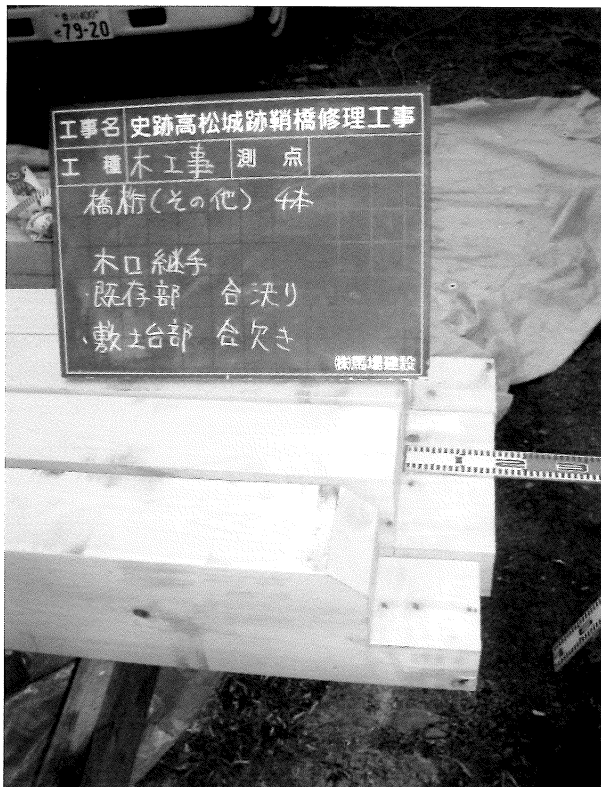 香川400
79-20
工事名 史跡高松城跡鞘橋修理工事
工種 木工事 測点
橋桁(その他) 4本
木口継手
・既存部 合決り
・敷土台部 合欠き
㈱馬場建設